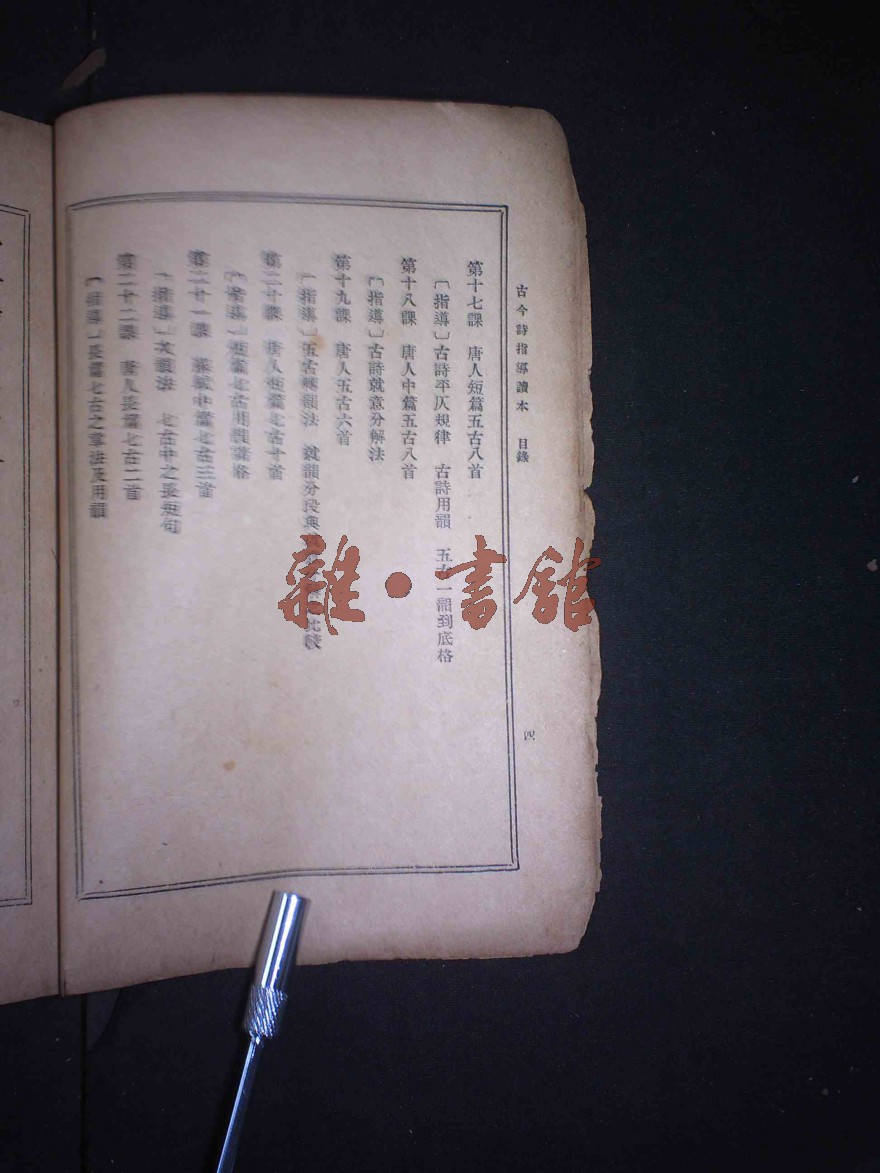 古今詩指導讀本 目錄
四
第十七課 唐人短篇五古八首
〔指導〕古詩平仄規律 古詩用韻 五古一韻到底格
第十八課 唐人中篇五古八首
〔指導〕古詩就意分解法
第十九課 唐人五古六首
〔指導〕五古轉韻法 就韻分段與 比較
第二十課 唐人短篇七古十首
〔指導〕短篇七古用韻諸格
第二十一課 中篇七古三首
〔指導〕 韻法 七古中之長短句
第二十二課 唐人長篇七古二首
〔指導〕長篇七古之章法及用韻
雜·書館